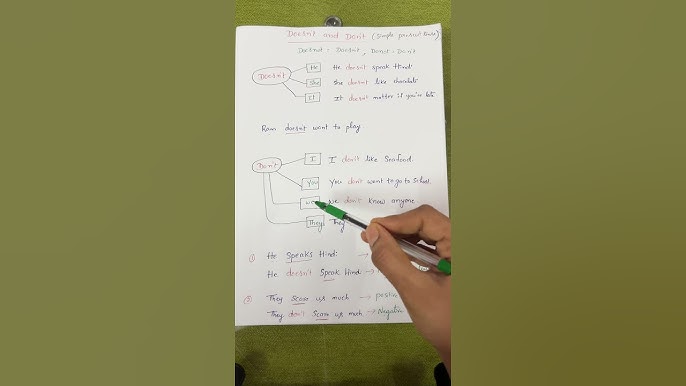 Doesn't and Don't (Simple present tense)
Doesnot - Doesn't, Donot - Don't
Doesn't
He He doesn't speak Hindi
She She doesn't like chocolate
It It doesn't matter if you're late
Ram doesn't want to play
Don't
I I don't like Seafood.
You You don't want to go to School
We We don't know anyone
They They
① He Speaks Hindi →
He doesn't Speak Hindi →
② They Scare us much → positive
They don't Scare us much → Negative